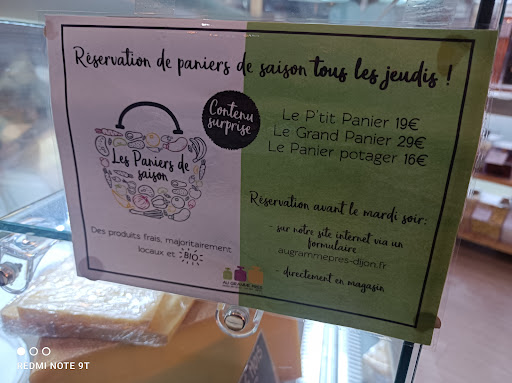 Réservation de paniers de saison tous les jeudis !
Les Paniers de
saison
Contenu
surprise
Des produits frais, majoritairement
locaux et BIO
Le P'tit Panier 19€
Le Grand Panier 29€
Le Panier potager 16€
Réservation avant le mardi soir:
- sur notre site internet via un
formulaire
augrammepres-dijon.fr
- directement en magasin
AU GRAMME PRÈS
REDMI NOTE 9T